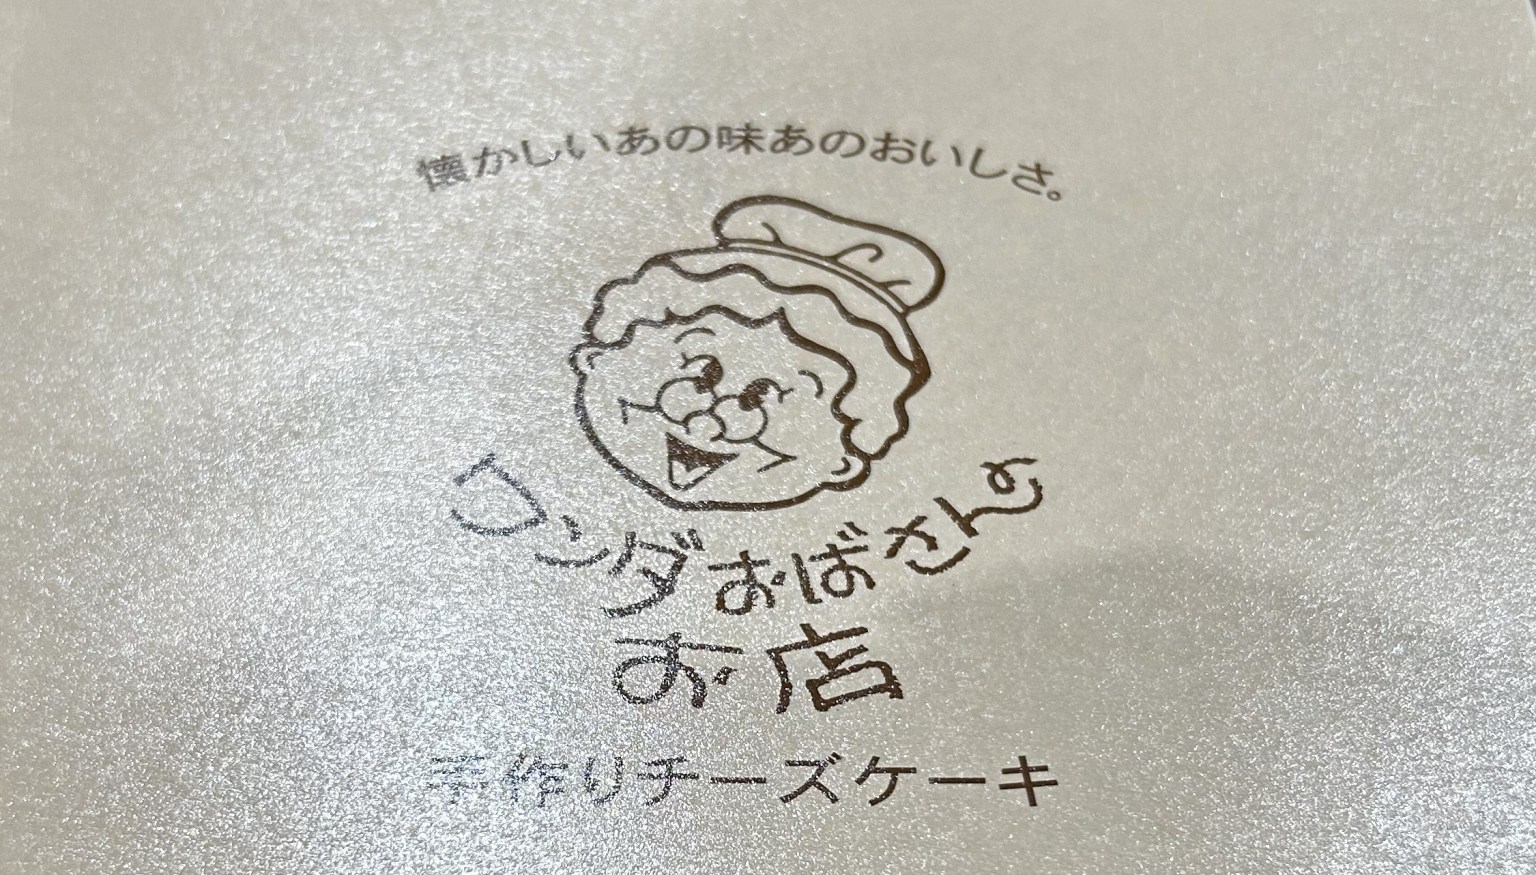 懐かしいあの味あのおいしさ。
ワンダおばさんの
お店
手作りチーズケーキ